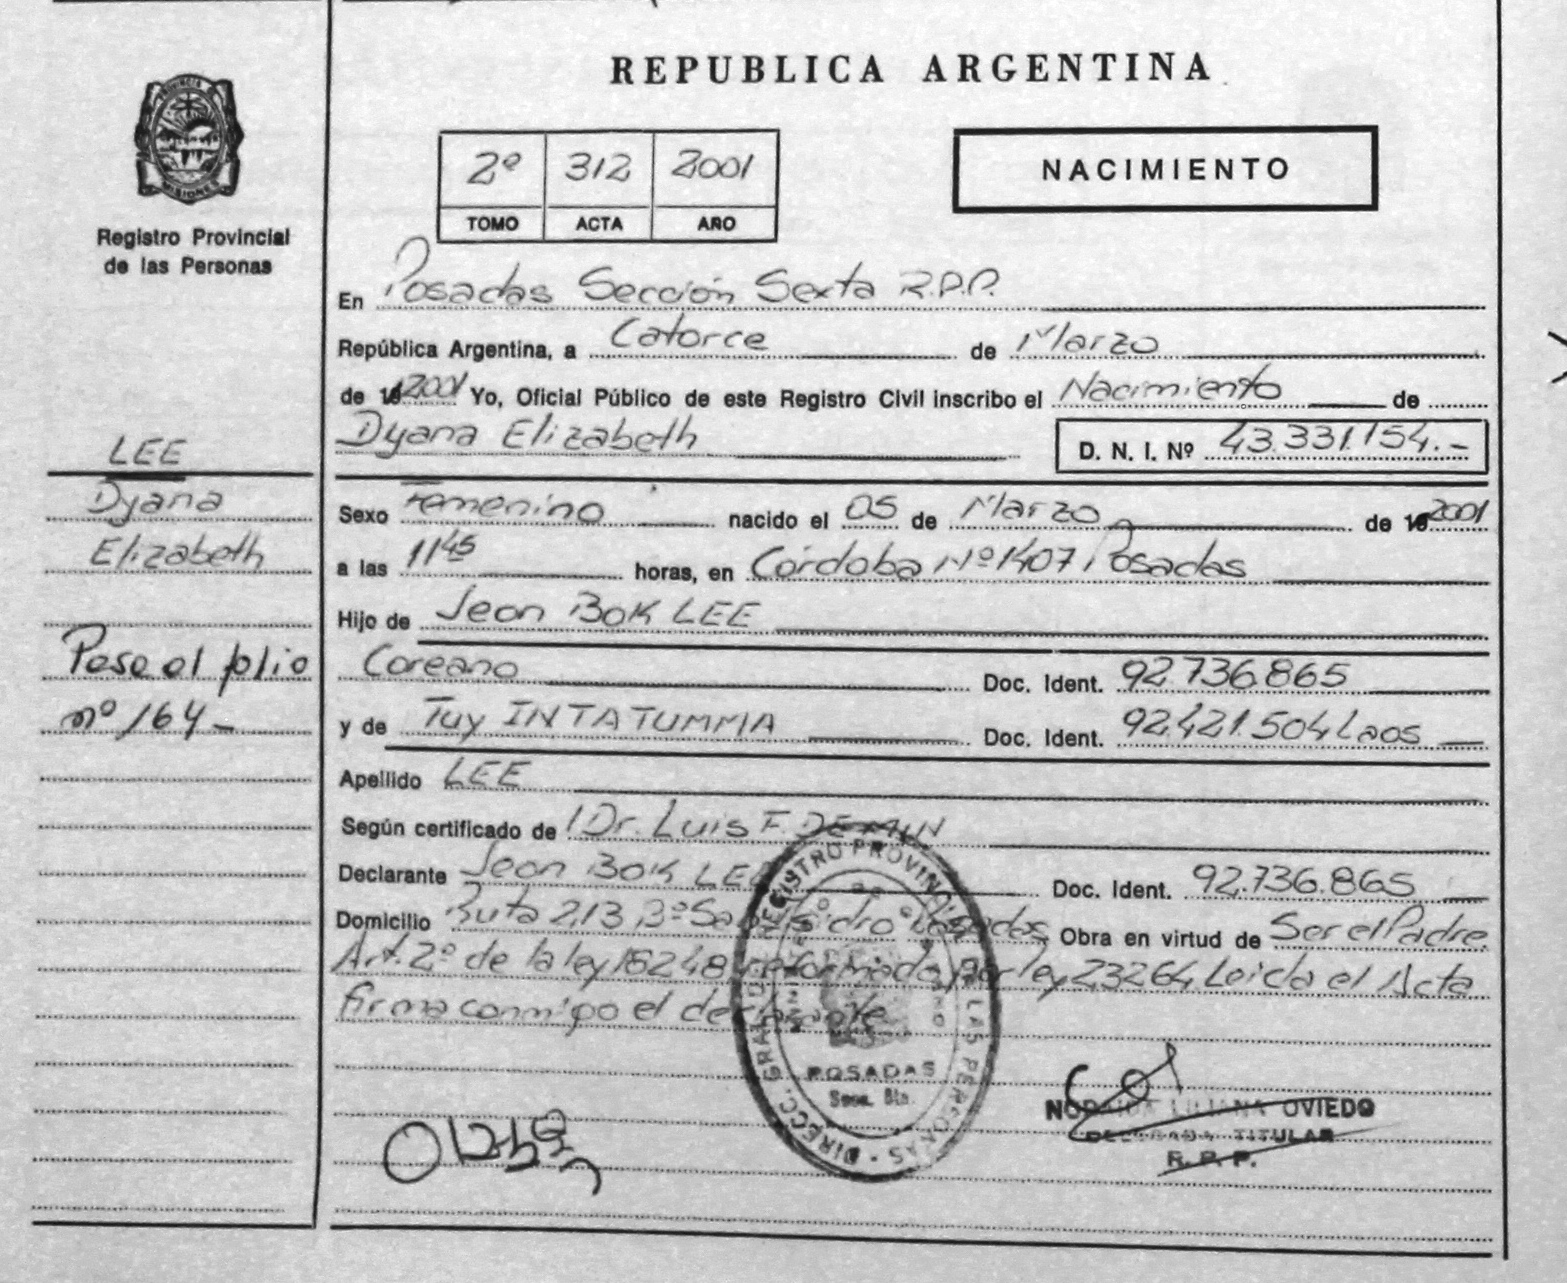 REPUBLICA ARGENTINA
PROVINCIA DE
MISIONES
Registro Provincial
de las Personas
2º 312 2001
TOMO ACTA AÑO
NACIMIENTO
En Posadas Sección Sexta R.P.P.
República Argentina, a Catorce de Marzo
de 19 2001 Yo, Oficial Público de este Registro Civil inscribo el Nacimiento de
Dyana Elizabeth D. N. I. Nº 43.331.154.-
LEE
Dyana
Elizabeth
Pase al folio
nº 164-
Sexo Femenino nacido el 05 de Marzo de 19 2001
a las 11 45 horas, en Córdoba Nº 1407 Posadas
Hijo de Jeon Bok LEE
Coreano Doc. Ident. 92.736.865
y de Tuy INTATUMMA Doc. Ident. 92.421.504 Laos
Apellido LEE
Según certificado de Dr. Luis F. DEMIN
Declarante Jeon Bok LEE Doc. Ident. 92.736.865
Domicilio Ruta 213, Bº San Isidro Posadas Obra en virtud de Ser el Padre
Art. 2º de la ley 18248 reformado por ley 23264 Leida el Acta
firma conmigo el declarante
DIRECC. GRAL. DEL REGISTRO PROVINCIAL DE LAS PERSONAS
POSADAS
Secc. 6ta.
LILIANA OVIEDO
DELEGADA TITULAR
R. P. P.